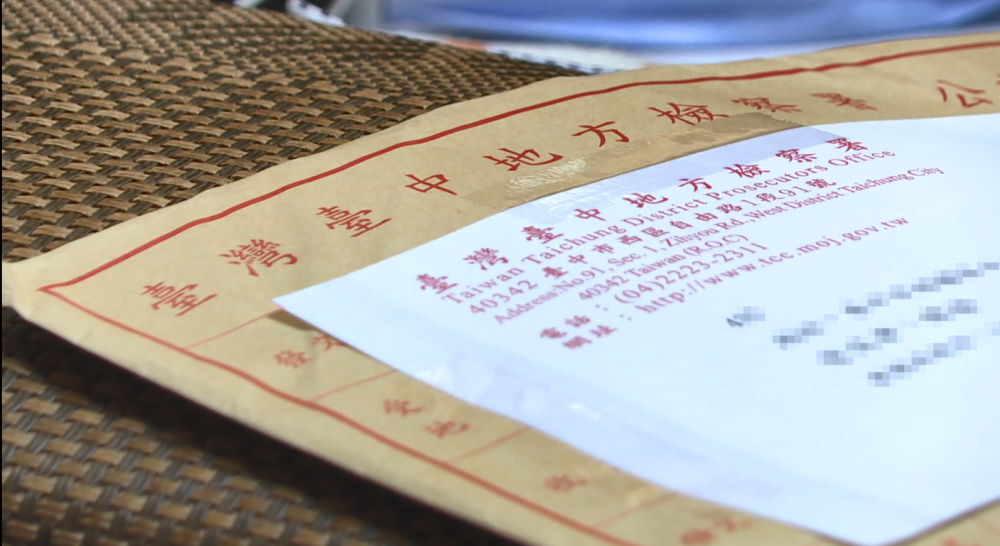 臺灣臺中地方檢察署 公
臺灣臺中地方檢察署
Taiwan Taichung District Prosecutors Office
40342 臺中市西區自由路1段91號
Address:No.91, Sec. 1, Ziyou Rd., West District Taichung City
40342 Taiwan (R.O.C)
電話：(04)2223-2311
網址：http://www.tcc.moj.gov.tw
發文
受
地
收